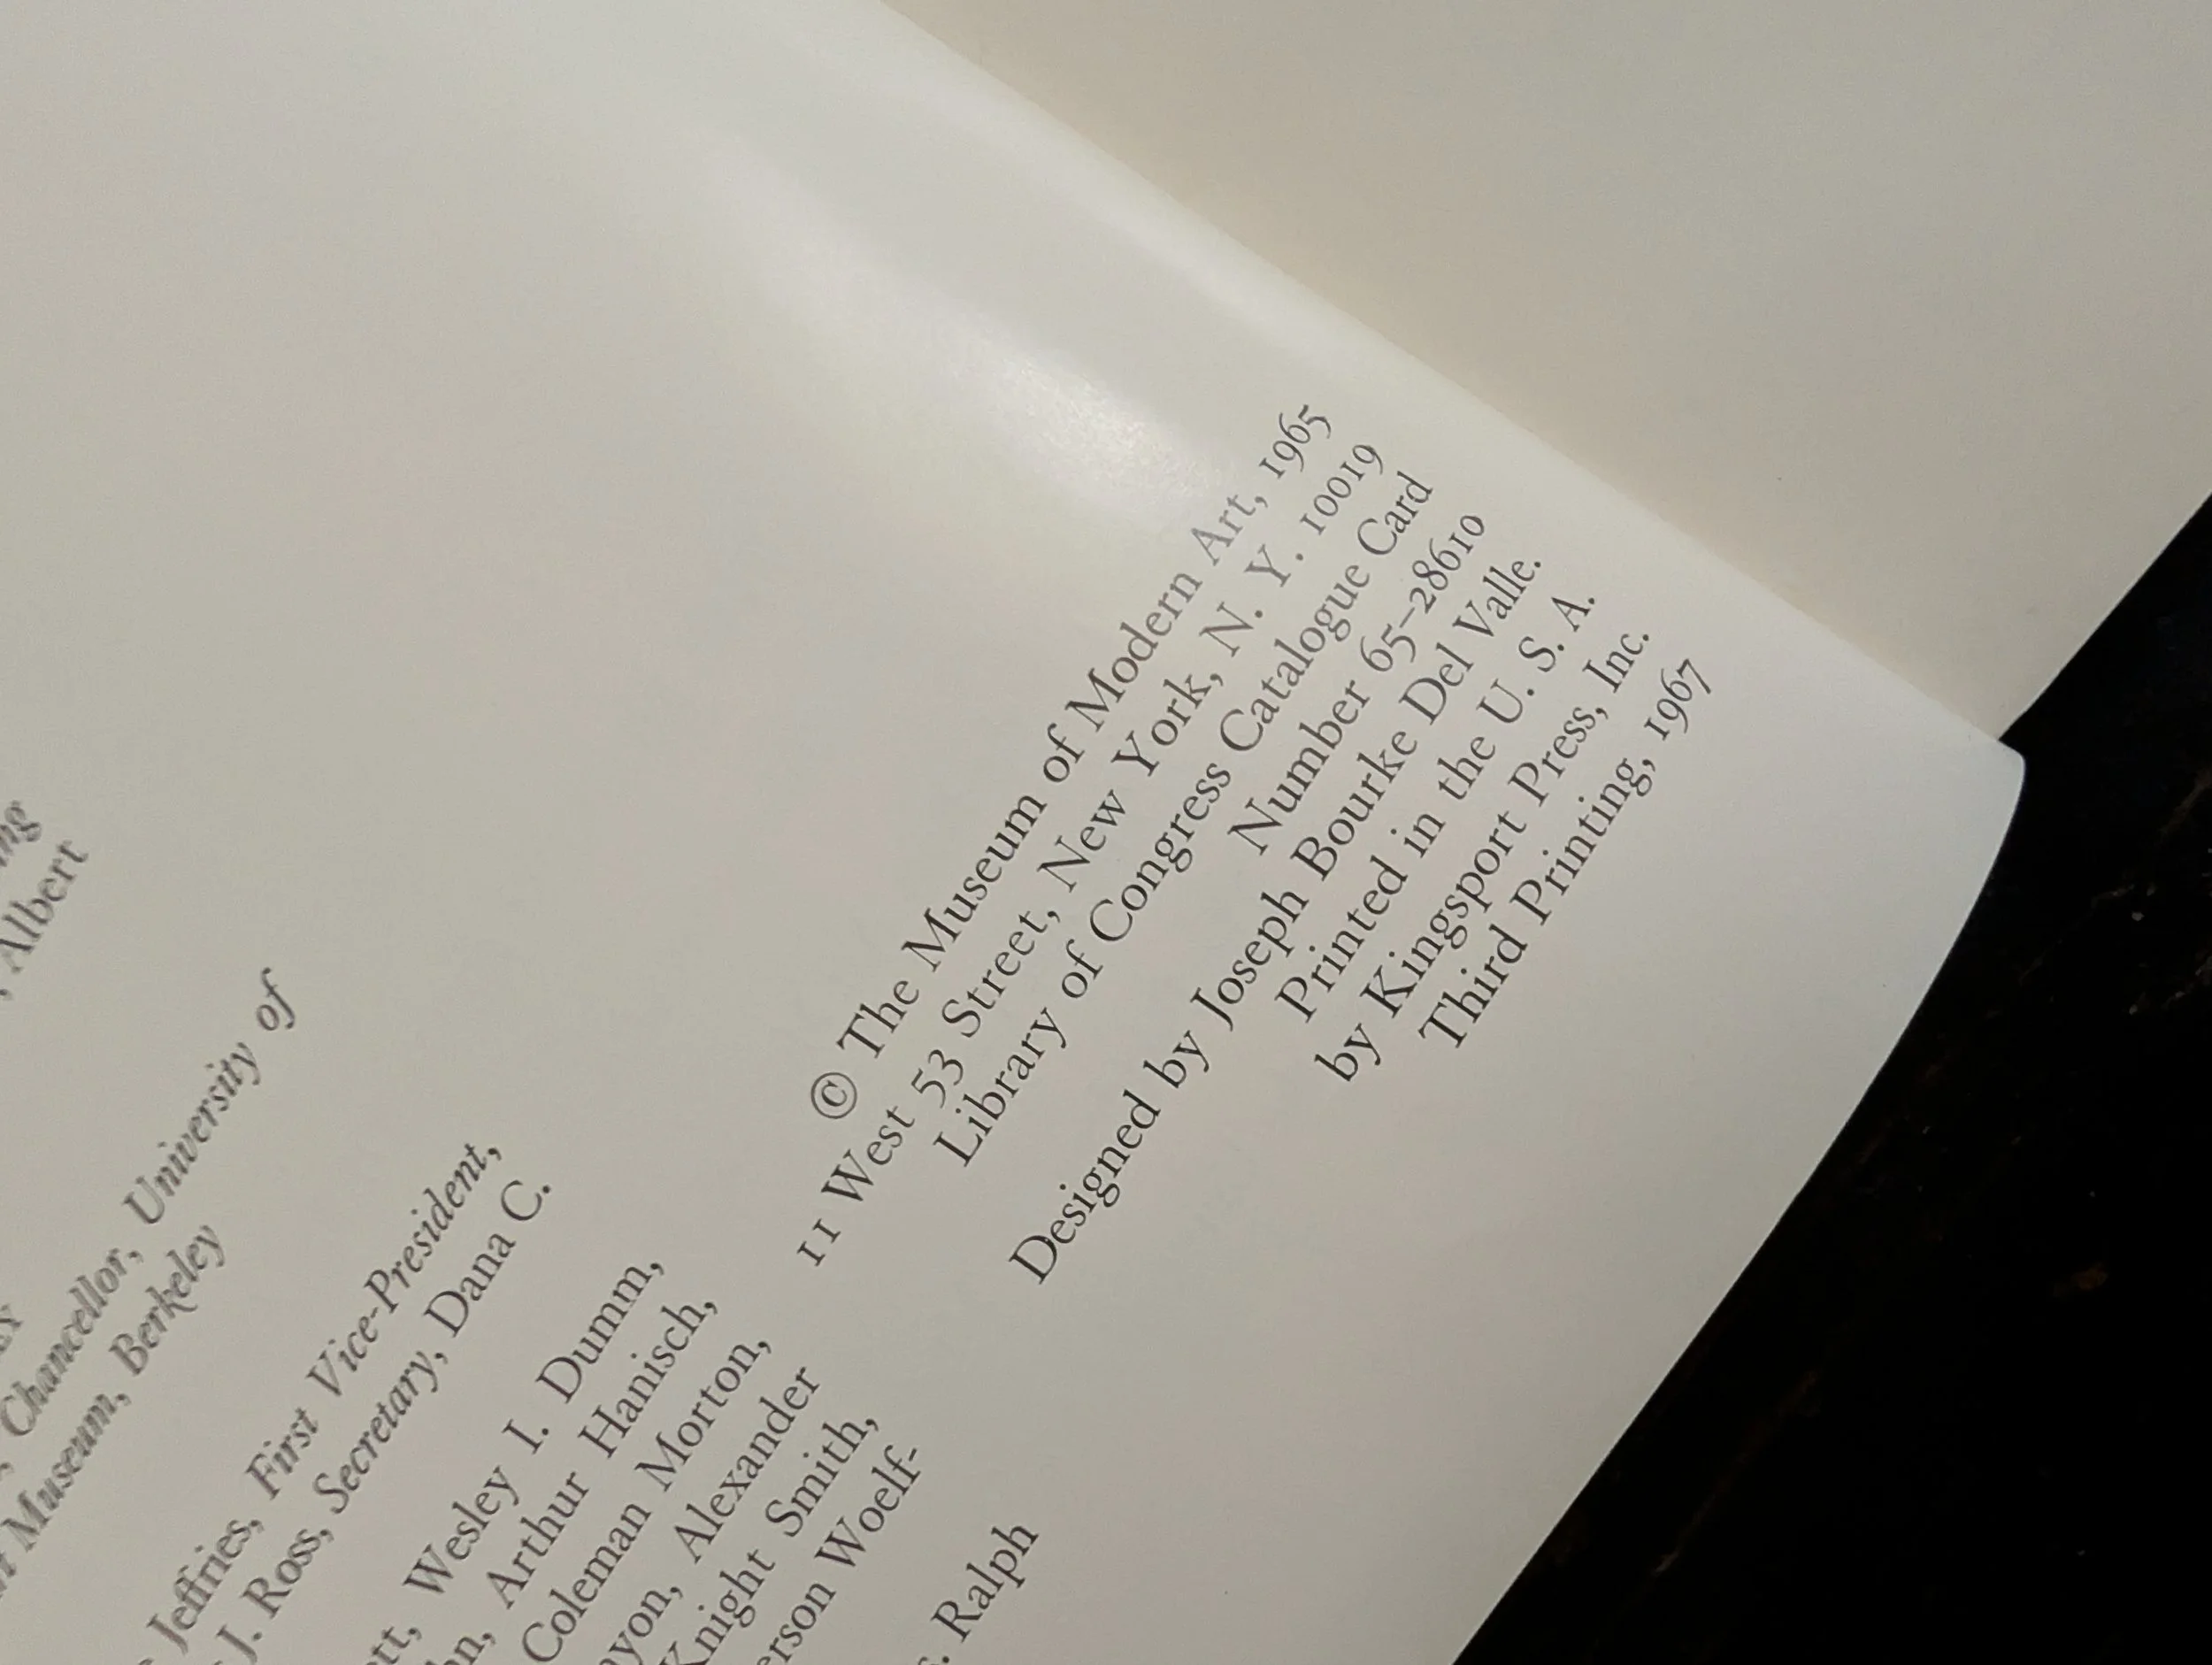 Albert
Chancellor, University of
Museum, Berkeley
Jeffries, First Vice-President,
J. Ross, Secretary, Dana C.
Wesley I. Dumm,
Arthur Hanisch,
Coleman Morton,
Alexander
Knight Smith,
Woelf-
Ralph
© The Museum of Modern Art, 1965
11 West 53 Street, New York, N. Y. 10019
Library of Congress Catalogue Card
Number 65–28610
Designed by Joseph Bourke Del Valle.
Printed in the U. S. A.
by Kingsport Press, Inc.
Third Printing, 1967